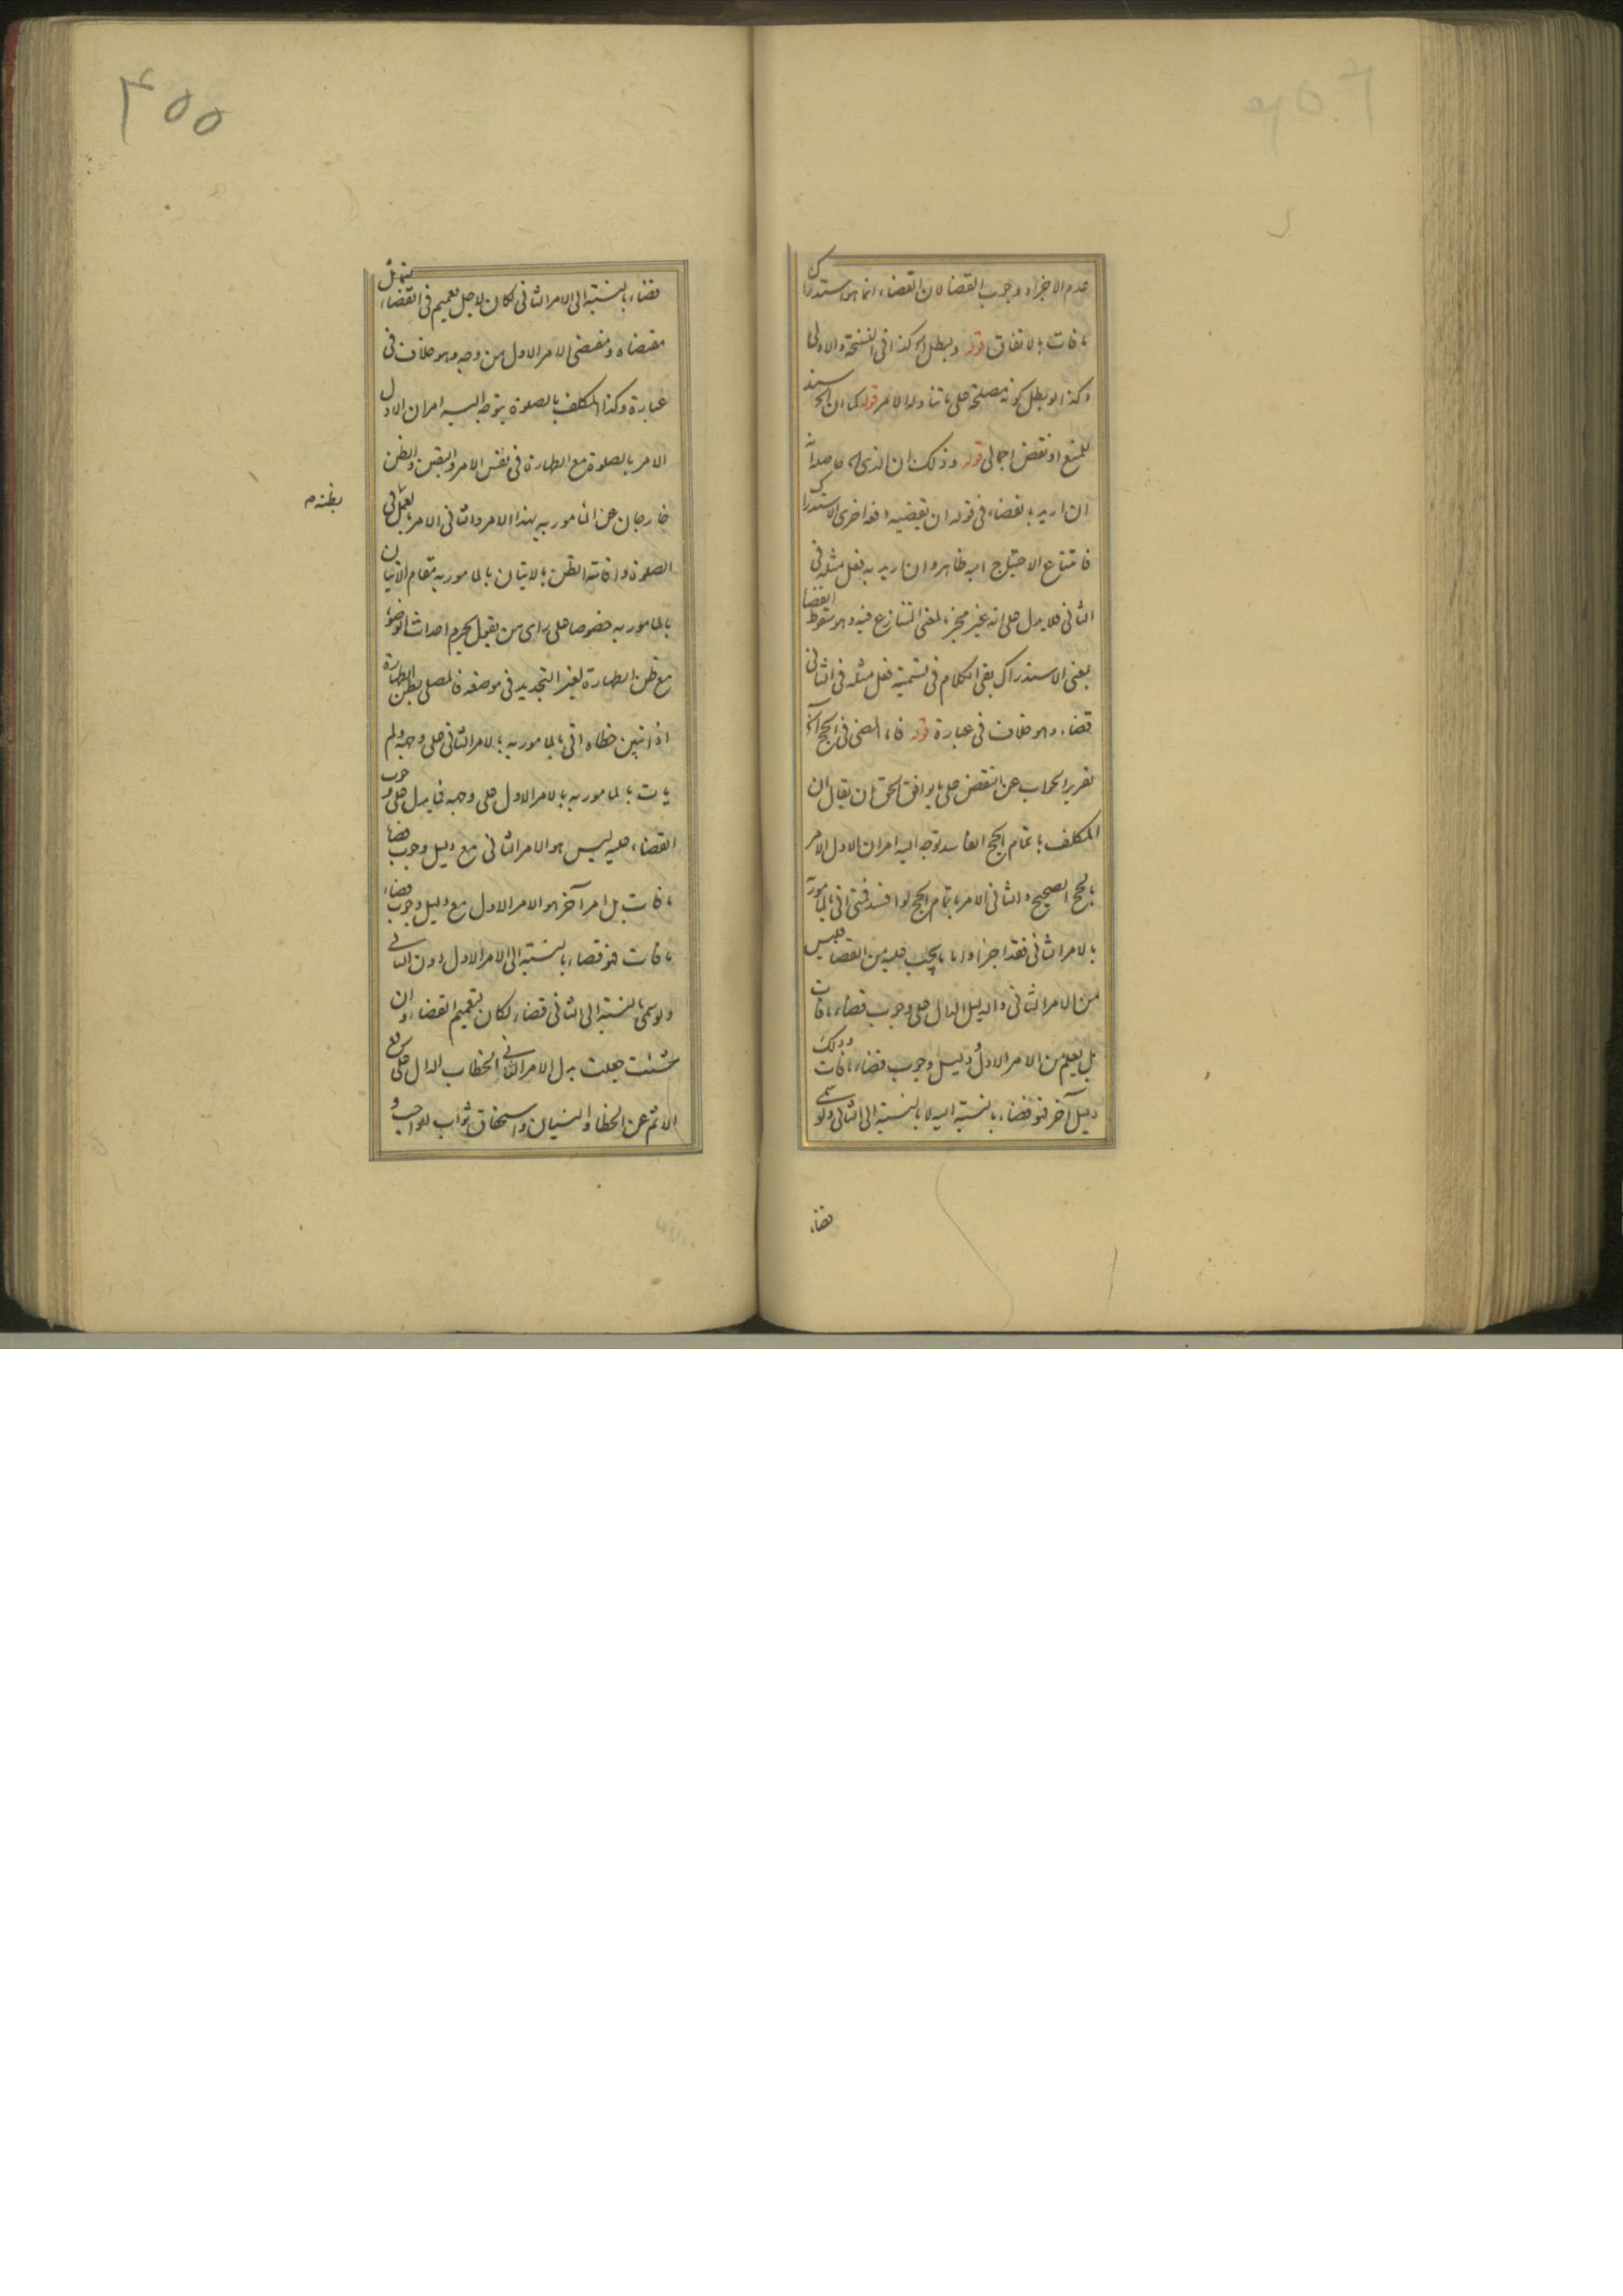 عدم الاجزاء وجوب القضا لان القضاء انما هو استدراك
ما فات بالاتفاق قوله ويبطل كذا فى النسخة والاولى
وكذا لو بطل كونه مصلحة على ما تناوله الامر قوله كما ان سند
للمنع او نقض اجمالى قوله وذلك ان الذى حاصله انه
ان اريد بالقضاء فى قوله ان يقضيه دفعة اخرى الاستدراك
فامتناع الاحتياج اليه ظاهر وان اريد به فعل مثله فى
الثانى فلا يدل على انه غير مجز بالمعنى المتنازع فيه وهو سقوط القضا
بمعنى الاستدراك بقى الكلام فى تسمية فعل مثله فى الثانى
قضاء وهو خلاف فى عبارة قوله فاما المضى فى الحج آه
تقرير الجواب عن النقض على ما يوافق الحق ان يقال ان
المكلف باتمام الحج الفاسد توجه اليه امران الاول الامر
بالحج الصحيح والثانى الامر باتمام الحج لو افسد فمتى اتى بالمامور به
بالامر الثانى فقد اجزاه واما ما يجب عليه من القضا فليس
من الامر الثانى والدليل الدال على وجوب قضاء ما فات
بل يعلم من الامر الاول ودليل وجوب قضاء ما فات وذلك
دليل آخر فهو قضاء بالنسبة اليه لا بالنسبة الى الثانى ولو سمى
قضاء
٤٥٥
قضاء بالنسبة الى الامر الثانى لكان لاجل تعميم فى القضاء يتمثل
مقتضاه ومقتضى الامر الاول من وجه وهو خلاف فى
عبارة وكذا المكلف بالصلوة يتوجه اليه امران الاول
الامر بالصلوة مع الطهارة فى نفس الامر واليقين والظن
خارجان عن المامور به بهذا الامر والثانى الامر بالعمل فى
بظنه م
الصلوة واقامة الظن بالاتيان بالمامور به مقام الاتيان
بالمامور به خصوصا على راى من يقول بحرم احداث الوضوء
مع ظن الطهارة لغير التجديد فى موضعه فالمصلى بظن الطهارة
اذا تبين خطاه اتى بالمامور به بالامر الثانى على وجهه ولم
يات بالمامور به بالامر الاول على وجهه فما يدل على وجوب
القضاء عليه ليس هو الامر الثانى مع دليل وجوب قضاء
ما فات بل امر آخر هو الامر الاول مع دليل وجوب قضاء
ما فات فهو قضاء بالنسبة الى الامر الاول دون الثانى
ولو سمى بالنسبة الى الثانى قضاء لكان بتعميم القضاء وان
شئت جعلت بدل الامر الثانى الخطاب الدال على رفع
الاثم عن الخطا والنسيان واستحقاق ثواب الواجب و